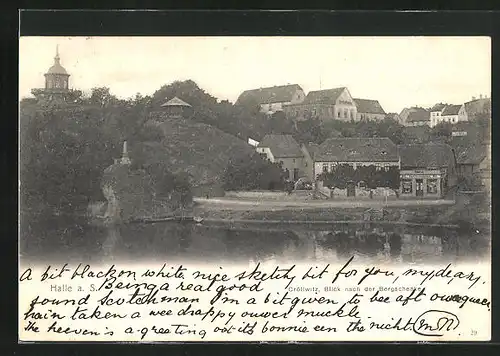 Halle a. S.
Cröllwitz, Blick nach der Bergschenke
A bit black on white nice sketch bit for you, my dear,
being a real good
sound scotchman I'm a bit given to bee aft owe
hain taken a wee drappy ower muckle
The heeven's a greeting oot its bonnie een the nicht
29